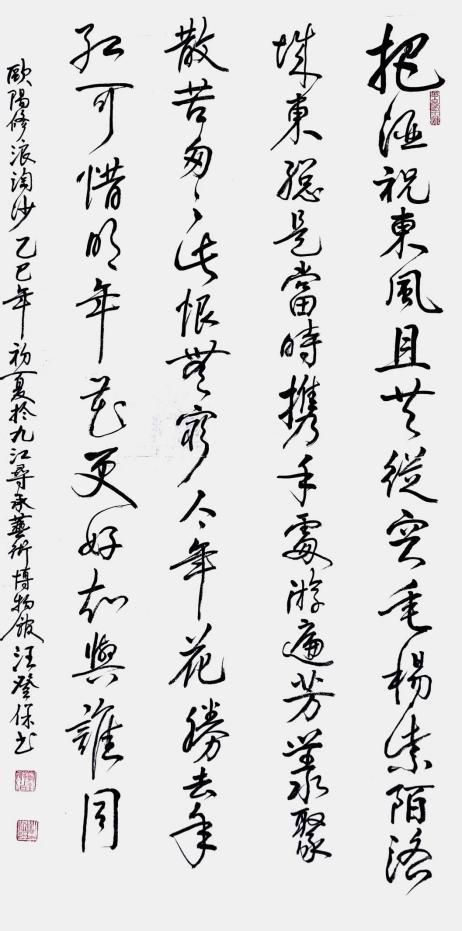 把酒祝東風且共從容垂楊紫陌洛
城東總是當時携手處游遍芳叢聚
散苦匆々此恨無窮今年花勝去年
紅可惜明年花更好知與誰同
歐陽修浪淘沙乙巳年初夏於九江尋承藝術博物館汪登保书